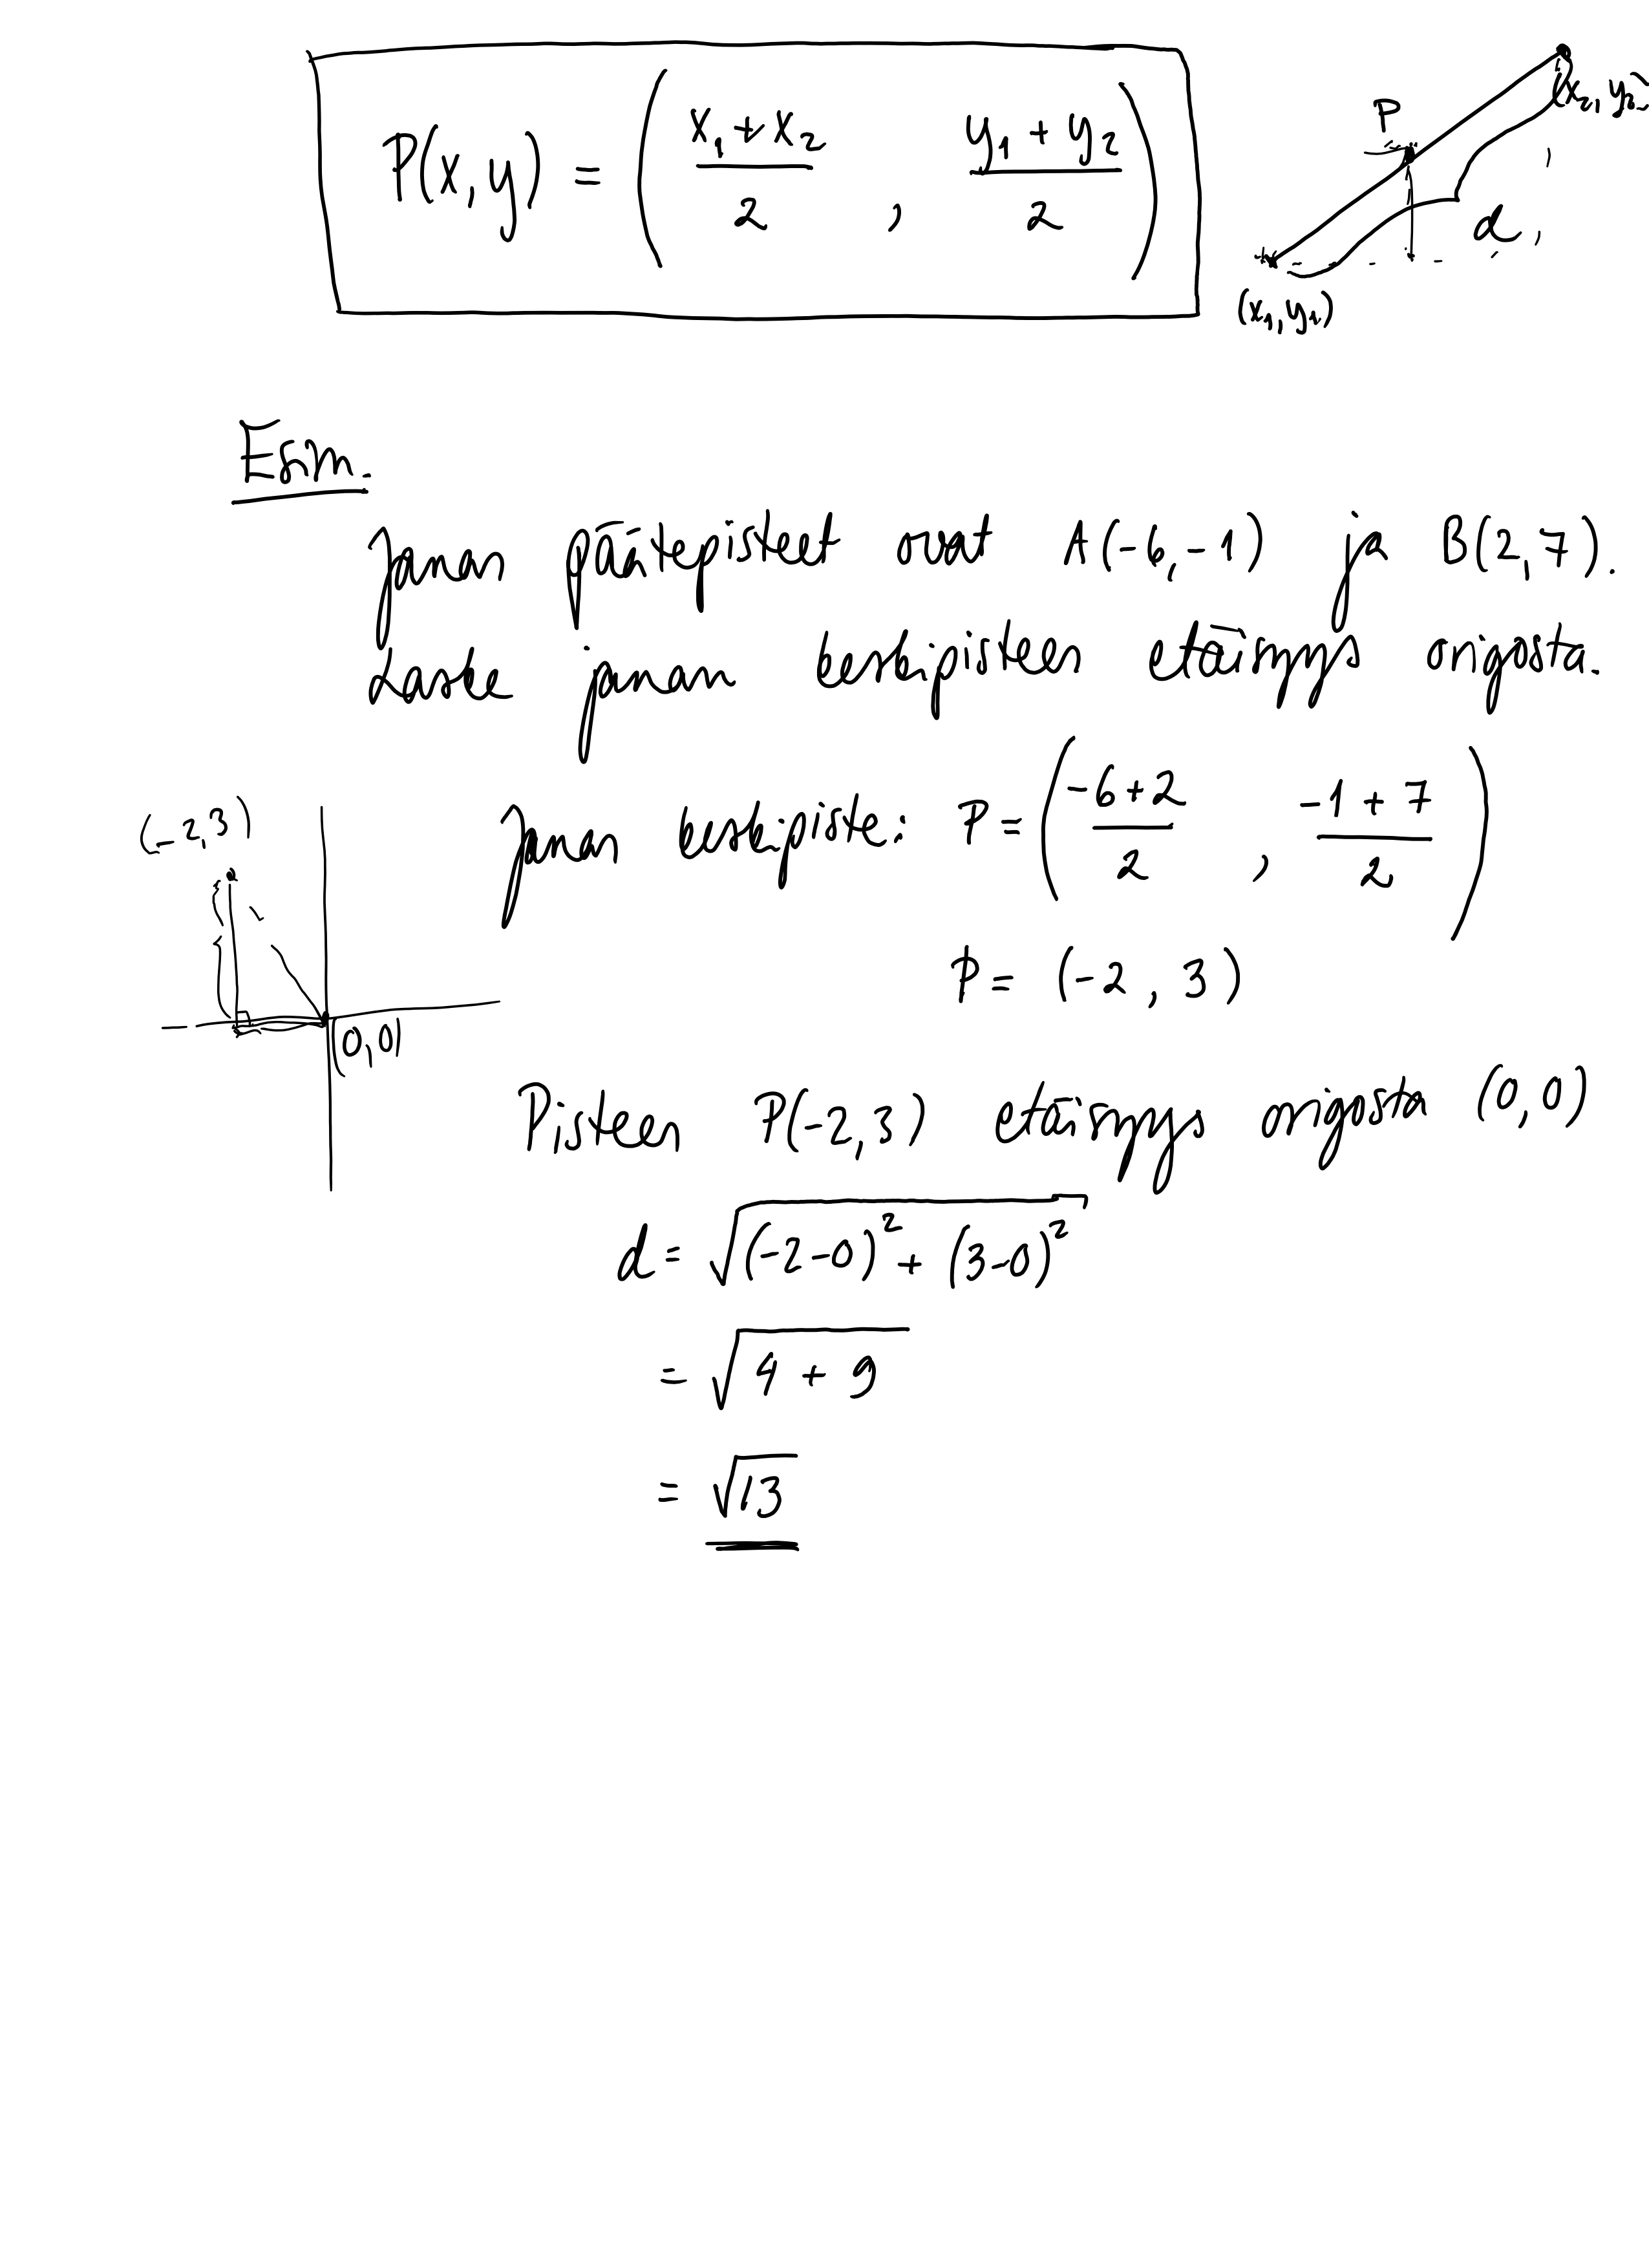 P(x,y) = ( (x₁+x₂)/2 , (y₁+y₂)/2 )
P
(x₂, y₂)
d
(x₁, y₁)
Esim.
Janan päätepisteet ovat A(-6,-1) ja B(2,7).
Laske janan keskipisteen etäisyys origosta.
(-2,3)
(0,0)
Janan keskipiste: P = ( (-6+2)/2 , (-1+7)/2 )
P = (-2, 3)
Pisteen P(-2,3) etäisyys origosta (0,0)
d = √((-2-0)² + (3-0)²)
= √(4 + 9)
= √13